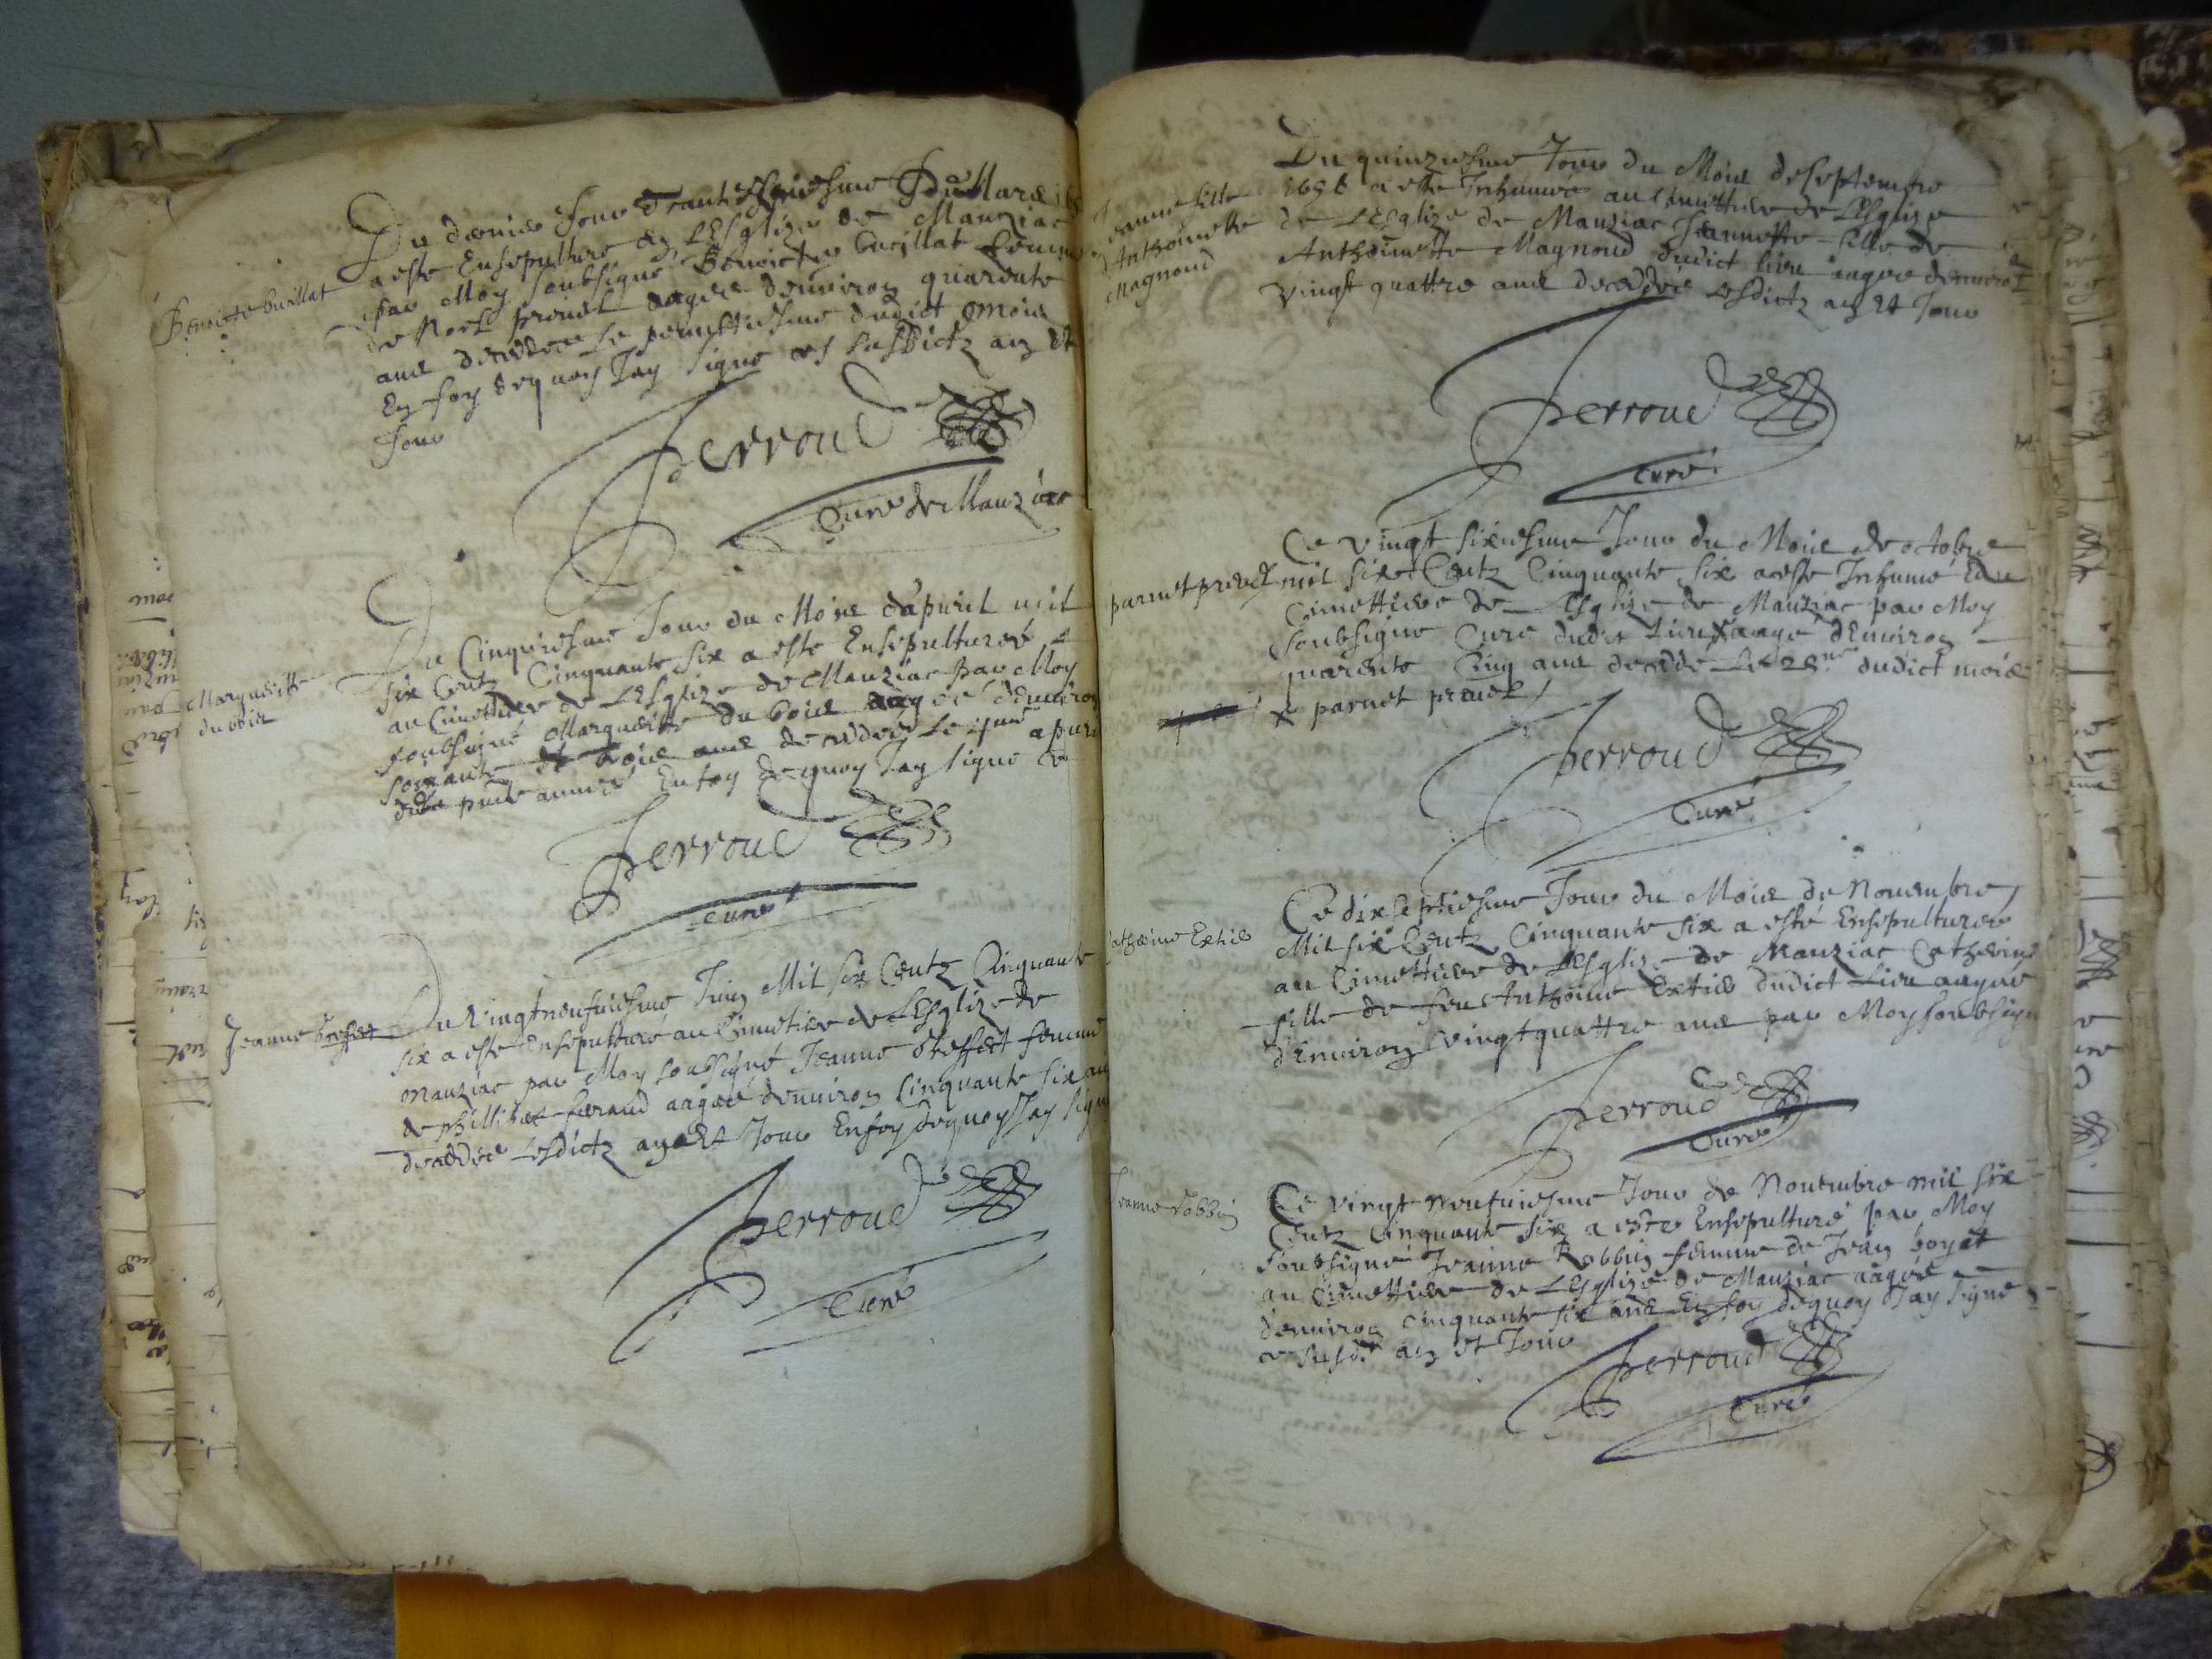 Benoiste Cuzillat
Du dernier Jour Du Mars
a este Ensepulturé en L'Esglize de Manziac
par Moy soubsigné Benoicte Cucillat femme
de Noel preuel aagée denuiron quarente
ans decedee Le dudict mois
En foy dequoy Jay signé les susdictz an et
Jour
Perroud
Curé de Manziac
Marguerite
du bois
Du Cinquiesme Jour du Mois d'apuril mil
six Centz Cinquante six a este Ensepulturée
au Cimettiere de L'Esglize de Manziac par Moy
soubsigné Marguerite du bois aagée d'Enuiron
soixante et trois ans decedée Le apuril
annee En foy dequoy Jay signé
Perroud
Curé
Jeanne
Du Vingtneufuiesme Juin Mil six Centz Cinquante
six a este Ensepulturé au Cimetiere de L'Esglize de
Manziac par Moy soubsigné Jeanne femme
de phillibert feraud aagée denuiron Cinquante six ans
decedee Lesdictz an et Jour En foy dequoy Jay signé
Perroud
Curé
Jeanne fille
d'Anthoinette
Magnoud
Du quinziesme Jour du Mois de septembre
1656 a este Inhumée au Cimettiere de L'Esglize
de L'Esglize de Manziac Jeannette fille de
Anthoinette Magnoud dudict lieu aagée denuiron
Vingt quattre ans decedée Lesdictz an et Jour
Perroud
Curé
parnet preuel
Ce vingt sixiesme Jour du Mois de octobre
mil six Centz Cinquante six a este Inhumé
Cimettiere de L'Esglize de Manziac par Moy
soubsigné Curé dudict Lieu x aagé d'Enuiron
quarente Cinq ans decedé Le dudict mois
x parnet preuel
Perroud
Curé
Catherine Extier
Ce dixseptiesme Jour du Mois de Nouembre
Mil six Centz Cinquante six a este Ensepulturée
au Cimettiere de L'Esglize de Manziac Catherine
fille de feu Anthoine Extier dudict Lieu aagée
d'Enuiron Vingtquattre ans par Moy soubsigné
Perroud
Curé
Jeanne Robbin
Ce vingt neufuiesme Jour de Nouembre mil six
Centz Cinquante six a este Ensepulturé par Moy
soubsigné Jeanne Robbin femme de Jean boyat
au Cimettiere de L'Esglize de Manziac aagée
denuiron Cinquante six ans En foy dequoy Jay signé
an et Jour
Perroud
Curé